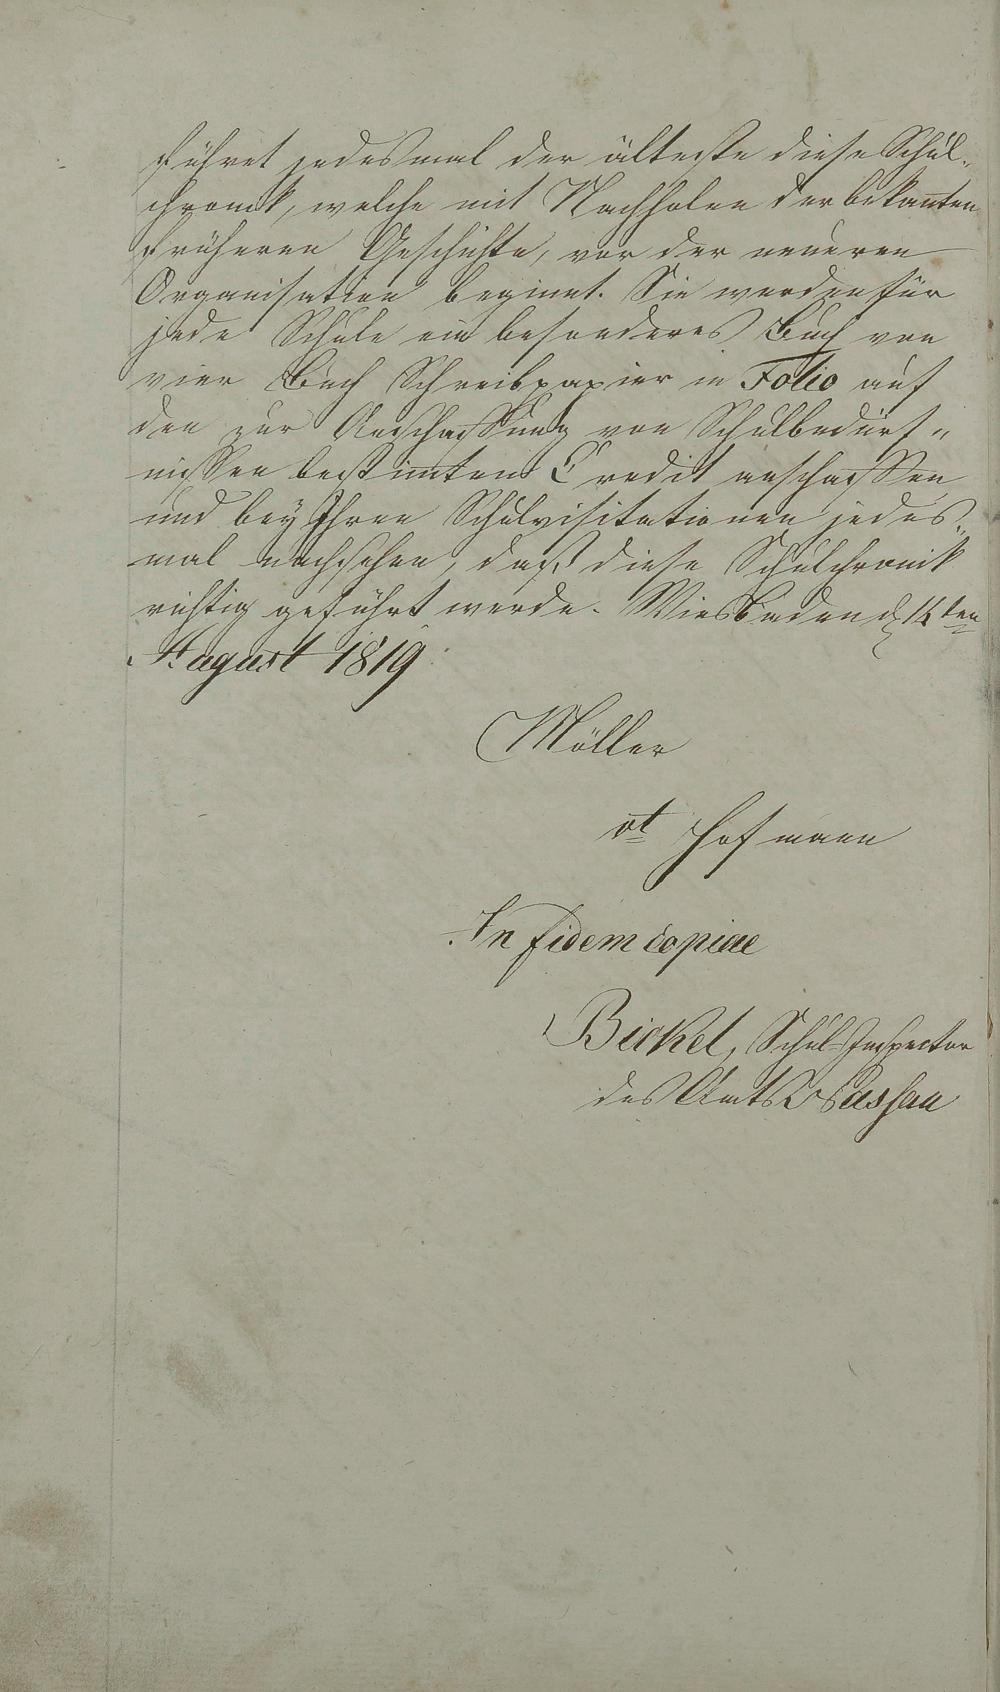 führet jedesmal der älteste diese Schul„
chronik, welche mit Nachholen der bekan̅ten
früheren Geschichte, vor der neueren
Organisation begin̅t. Sie werden für
jede Schule ein besonderes Buch von
vier Buch Schreibpapier in Folio auf
den zur Anschaffung von Schulbedürf„
nissen bestim̅ten Credit anschaffen
und bey Ihren Schulvisitationen jedes„
mal nachsehen, daß diese Schulchronik
richtig geführt werde. Wiesbaden d 14ten
August 1819
Möller
vt Hofmann
In fidem copiae
Bickel, Schul-Inspector
des Amts Nassau